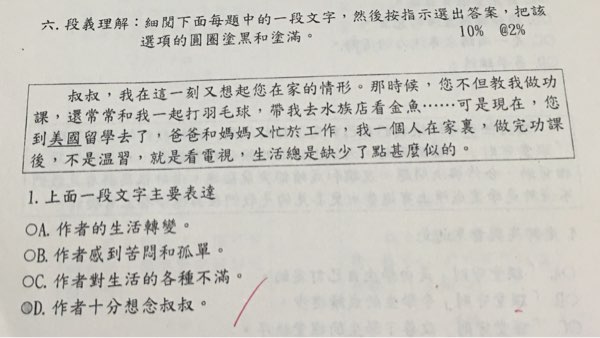 六. 段義理解：細閱下面每題中的一段文字，然後按指示選出答案，把該
選項的圓圈塗黑和塗滿。 10% @2%
叔叔，我在這一刻又想起您在家的情形。那時候，您不但教我做功
課，還常常和我一起打羽毛球，帶我去水族店看金魚……可是現在，您
到美國留學去了，爸爸和媽媽又忙於工作，我一個人在家裏，做完功課
後，不是溫習，就是看電視，生活總是缺少了點甚麼似的。
1. 上面一段文字主要表達
A. 作者的生活轉變。
B. 作者感到苦悶和孤單。
C. 作者對生活的各種不滿。
D. 作者十分想念叔叔。